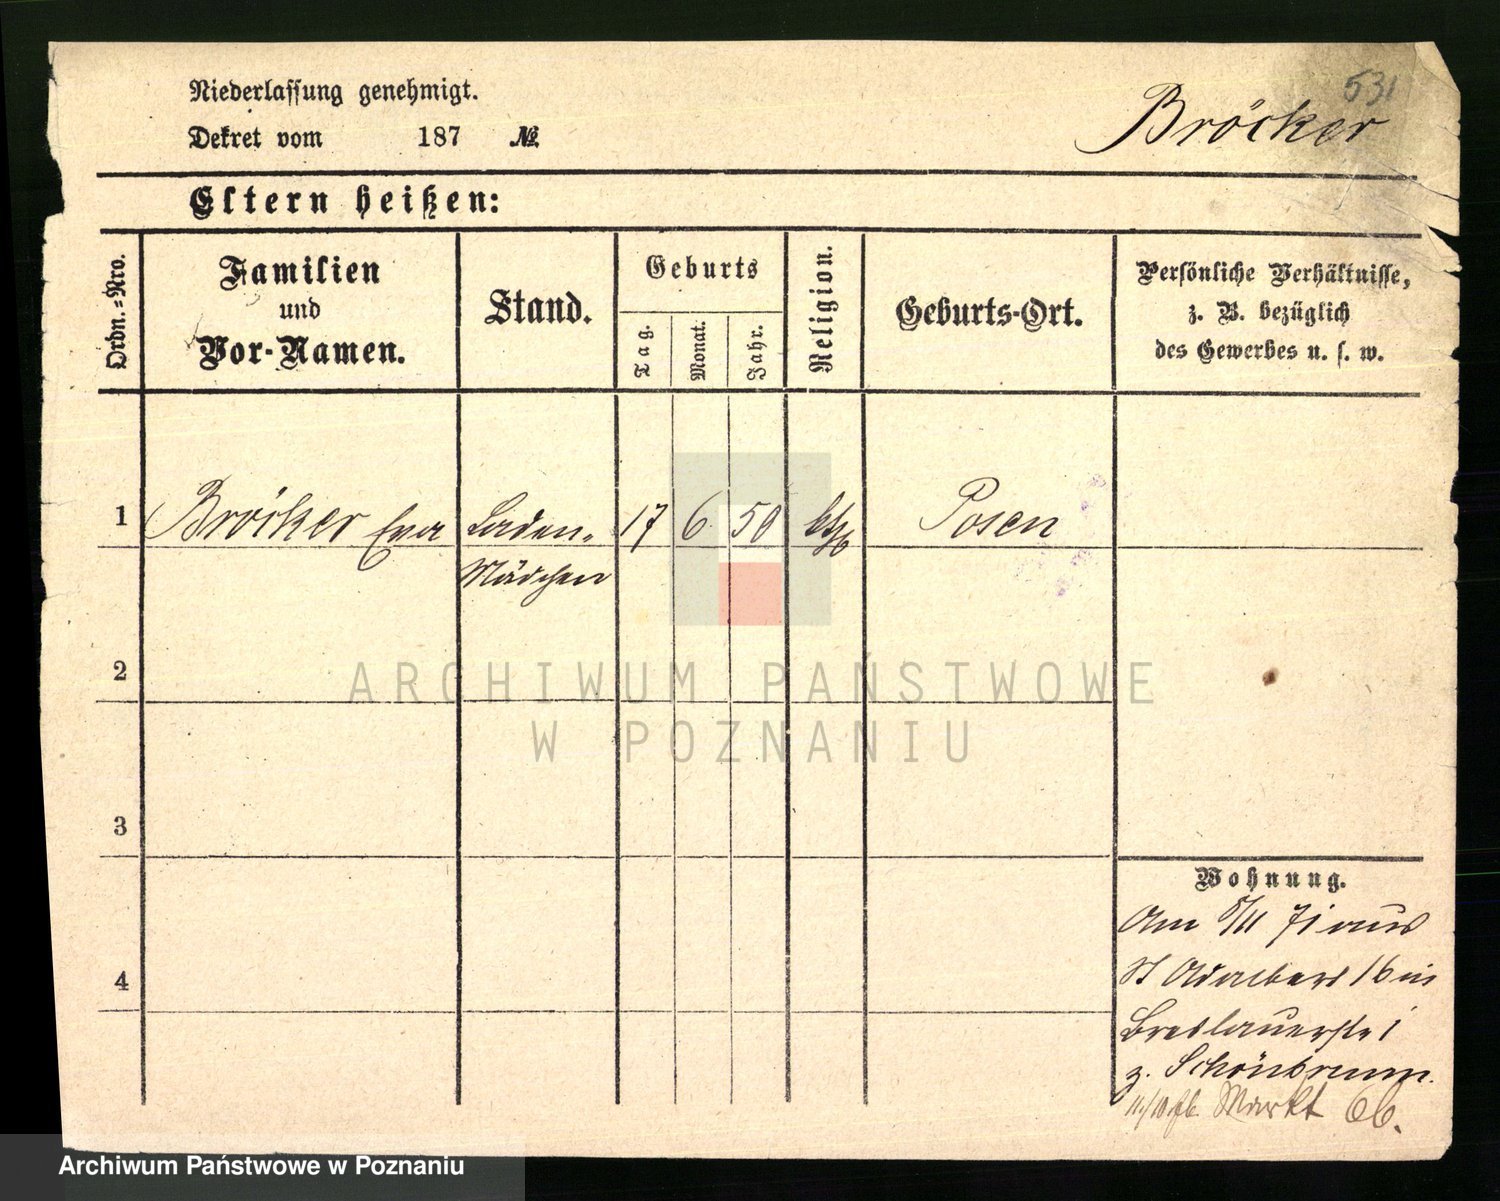 531
Niederlassung genehmigt.
Bröcker
Dekret vom 187 №
Eltern heißen:
Ordn.-Nro.
Familien
und
Vor-Namen.
Stand.
Geburts
Tag.
Monat.
Jahr.
Religion.
Geburts-Ort.
Persönliche Verhältnisse,
z. B. bezüglich
des Gewerbes u. s. w.
1 Bröcker Eva Laden- 17 6 50 Posen
Mädchen
2
3
4
Wohnung.
Am 5/11 71 aus
St Adalbert 16 in
Breslauerstr 1
z. Schönbrunn.
Markt 66.
ARCHIWUM PAŃSTWOWE
W POZNANIU
Archiwum Państwowe w Poznaniu